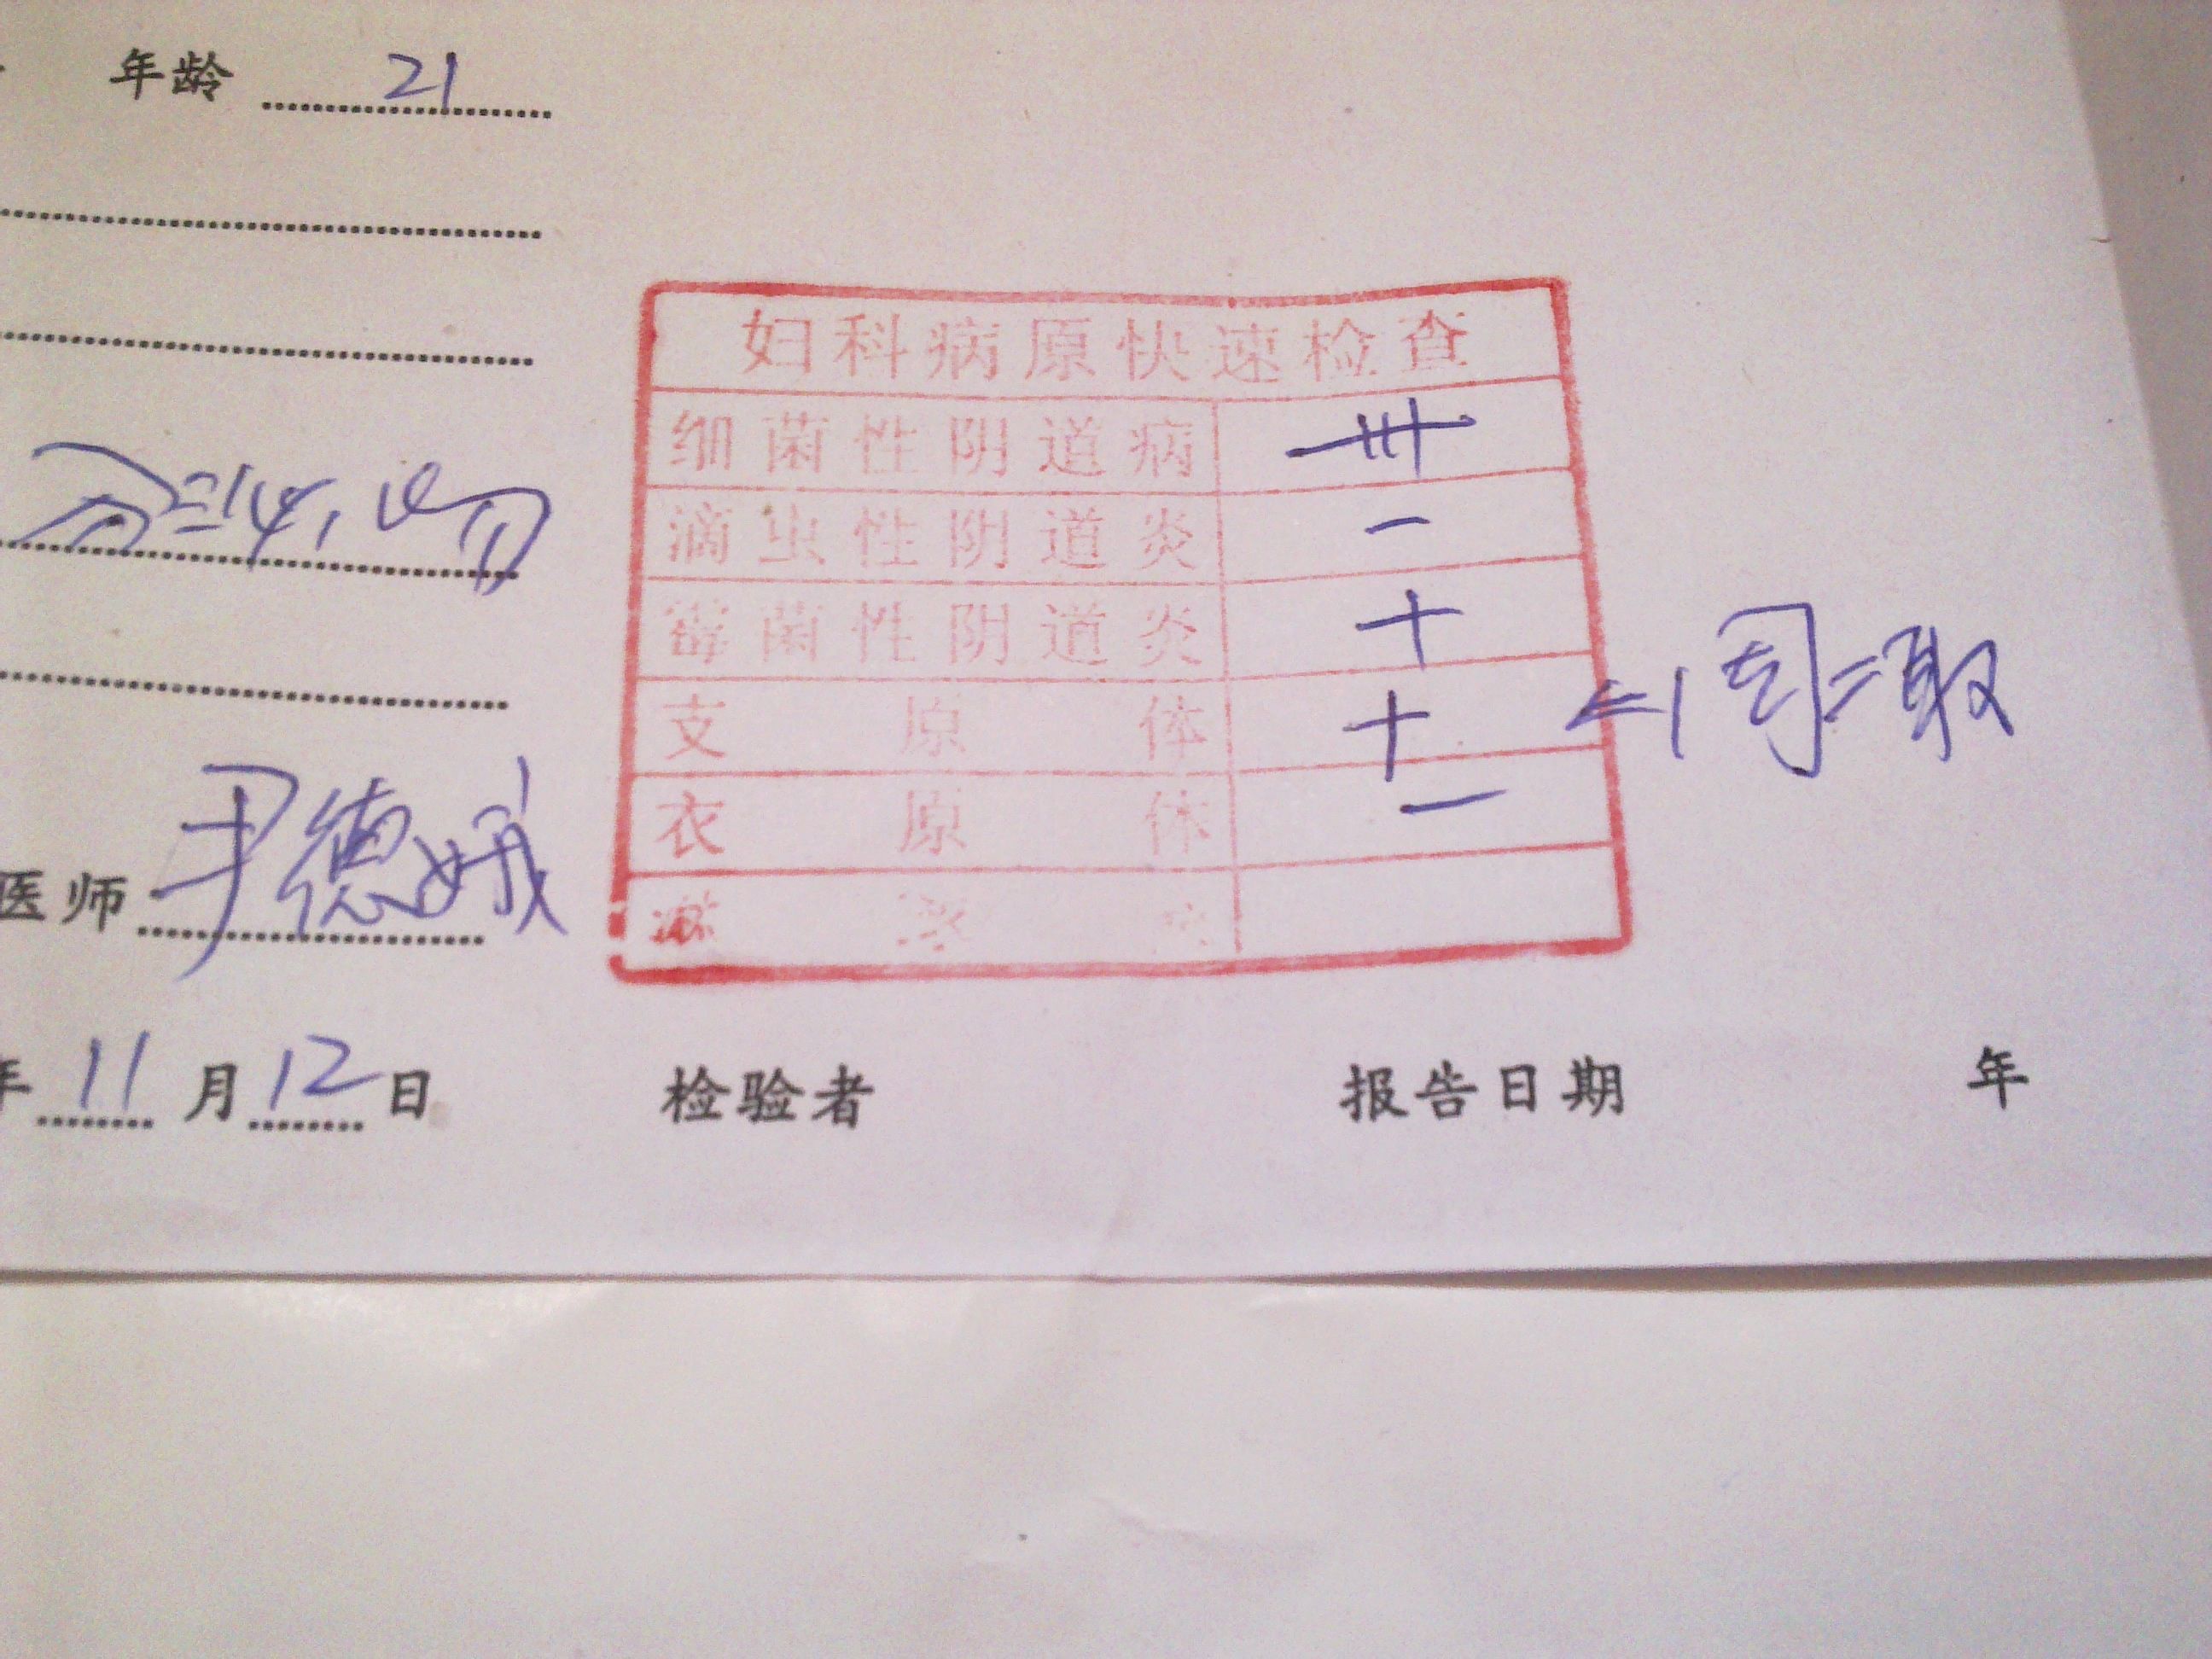 年龄 21
妇科病原快速检查
细菌性阴道病 +++
滴虫性阴道炎 -
霉菌性阴道炎 +
支原体 + ←1周二取
衣原体 -
医师 尹德娥
年 11 月 12 日 检验者 报告日期 年